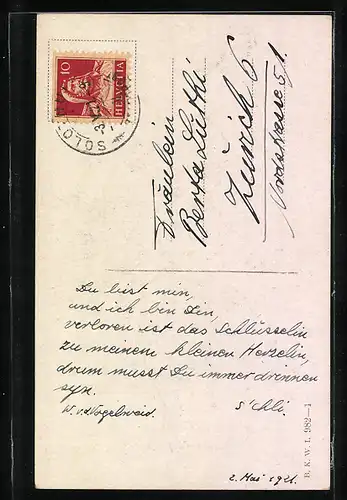 10
HELVETIA
SOLO
Fräulein
Berta Lüthi
Zürich 6
Nordstrasse 51.
Du bist min,
und ich bin Din,
verloren ist das Schlüsselin
zu meinem kleinen Herzelin,
drum musst Du immer drinnen
syn.
W. v. d. Vogelweid.
s'chli.
2. Mai 1921.
B. K. W. I. 982—1